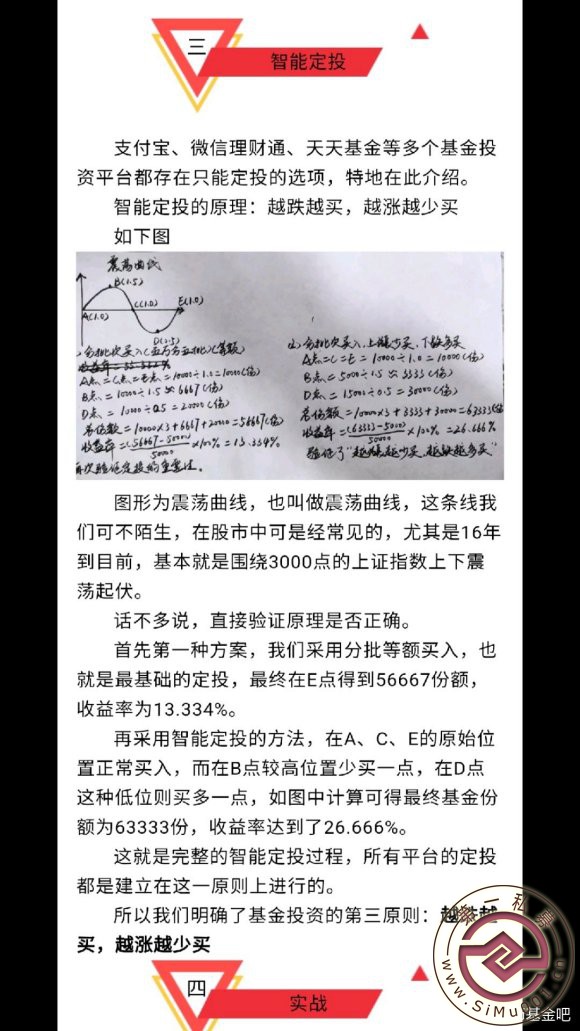 三
智能定投
支付宝、微信理财通、天天基金等多个基金投
资平台都存在只能定投的选项，特地在此介绍。
智能定投的原理：越跌越买，越涨越少买
如下图
震荡曲线
B(1.5)
A(1.0)
C(1.0)
E(1.0)
D(0.5)
A点=C点=E点=10000÷1.0=10000(份)
B点=10000÷1.5≈6667(份)
D点=10000÷0.5=20000(份)
总份数=10000×3+6667+20000=56667(份)
收益率=(56667-50000)/50000×100%=13.334%
再次验证定投的重要性.
A点=C=E=10000÷1.0=10000(份)
B点=5000÷1.5≈3333(份)
D点=15000÷0.5=30000(份)
总份数=10000×3+3333+30000=63333(份)
收益率=(63333-50000)/50000×100%=26.666%
验证了"越涨越少买,越跌越多买"
图形为震荡曲线，也叫做震荡曲线，这条线我
们可不陌生，在股市中可是经常见的，尤其是16年
到目前，基本就是围绕3000点的上证指数上下震
荡起伏。
话不多说，直接验证原理是否正确。
首先第一种方案，我们采用分批等额买入，也
就是最基础的定投，最终在E点得到56667份额，
收益率为13.334%。
再采用智能定投的方法，在A、C、E的原始位
置正常买入，而在B点较高位置少买一点，在D点
这种低位则买多一点，如图中计算可得最终基金份
额为63333份，收益率达到了26.666%。
这就是完整的智能定投过程，所有平台的定投
都是建立在这一原则上进行的。
所以我们明确了基金投资的第三原则：越跌越
买，越涨越少买
四
实战
第一私募
www.SiMu01.cn
基金吧